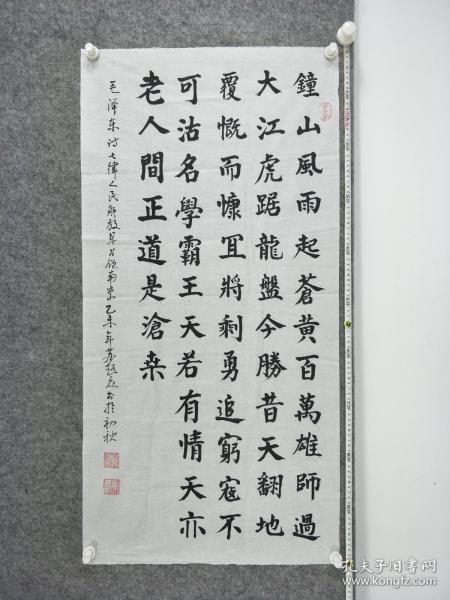 鐘山風雨起蒼黃百萬雄師過
大江虎踞龍盤今勝昔天翻地
覆慨而慷冝將剩勇追窮寇不
可沽名學霸王天若有情天亦
老人間正道是滄桒
毛泽东诗七律人民解放军占领南京乙未年书于初秋
孔夫子旧书网
www.kongfz.com